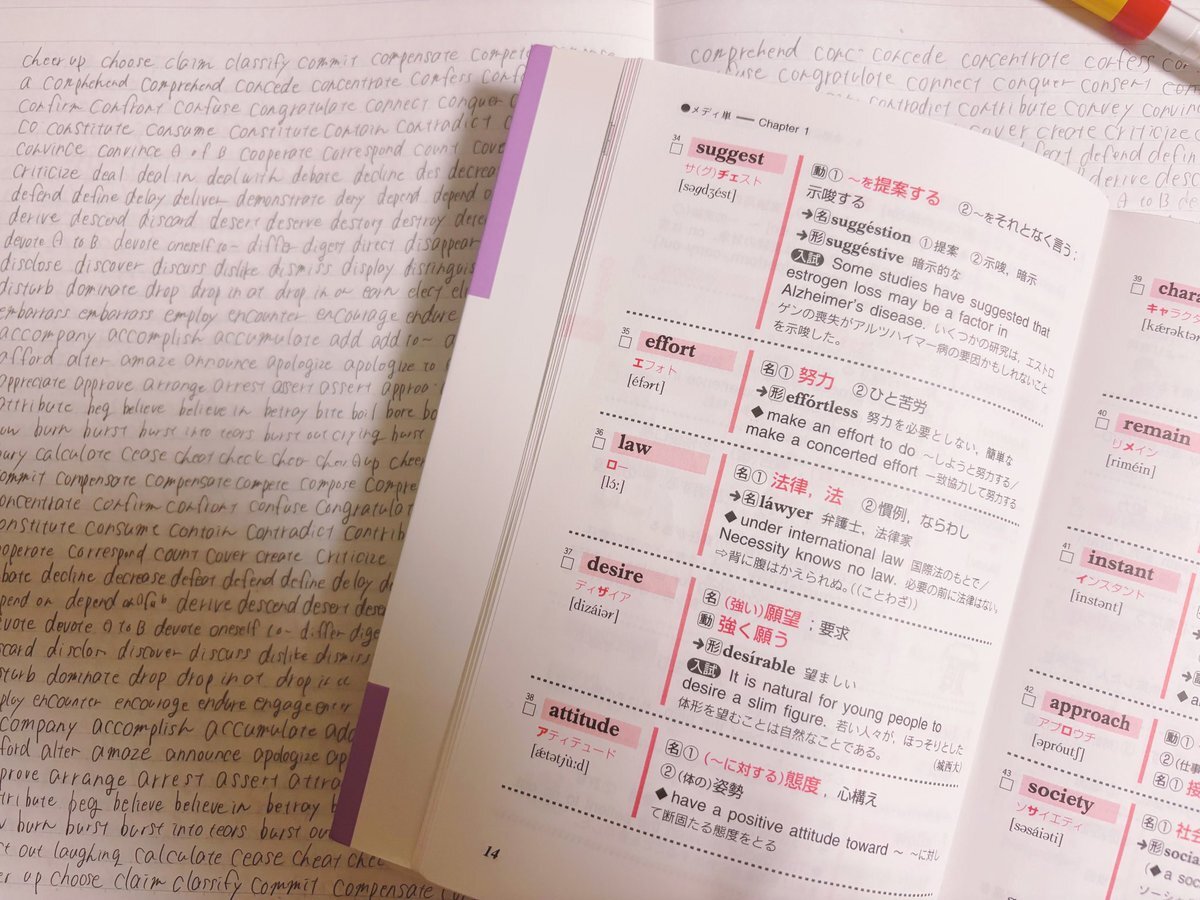 cheer up choose claim classify commit compensate
a comprehend comprehend concede concentrate confess
confirm confront confuse congratulate connect conquer
co constitute consume constitute contain contradict
convince convince A of B cooperate correspond count
criticize deal deal in deal with debate decline des
defend define delay deliver demonstrate deny depend depend
derive descend discard desert deserve destory destroy
devote A to B devote oneself to~ differ digest direct disappear
disclose discover discuss dislike dismiss display
disturb dominate drop drop in at drop in on earn elect
embarrass embarrass employ encounter encourage endure
accompany accomplish accumulate add add to~
afford alter amaze announce apologize apologize to
appreciate approve arrange arrest assert assert
attribute beg believe believe in betray bite boil bore
burn burst burst into tears burst out crying burst
calculate cease cheat check cheer cheer up
commit compensate compensate compete compose
concentrate confirm confront confuse
constitute consume contain contradict
cooperate correspond count cover create criticize
decline decrease defeat defend define delay
depend on depend derive descend desert
devote devote A to B devote oneself to~ differ
discover discuss dislike dismiss
disturb dominate drop drop in at drop in
encounter encourage endure engage
accompany accomplish accumulate add
afford alter amaze announce apologize
approve arrange arrest assert
attribute beg believe believe in betray
burn burst burst into tears burst
out laughing calculate cease cheat
up choose claim classify commit compensate
comprehend conc concede concentrate confess
congratulate connect conquer consent
contradict contribute convey
cover create criticize
defend
derive
A to B
●メディ単 — Chapter 1
34
suggest
サ(グ)チェスト
[səgdʒést]
動① ~を提案する ②~をそれとなく言う;
示唆する
→名suggéstion ①提案 ②示唆,暗示
→形suggéstive 暗示的な
入試 Some studies have suggested that
estrogen loss may be a factor in
Alzheimer's disease. いくつかの研究は,エストロ
ゲンの喪失がアルツハイマー病の要因かもしれないこと
を示唆した。
35
effort
エフォト
[éfərt]
名① 努力 ②ひと苦労
→形effórtless 努力を必要としない,簡単な
◆make an effort to do ~しようと努力する/
make a concerted effort 一致協力して努力する
36
law
ロー
[lɔ́ː]
名① 法律,法 ②慣例,ならわし
→名láwyer 弁護士,法律家
◆under international law 国際法のもとで/
Necessity knows no law. 必要の前に法律はない。
⇨背に腹はかえられぬ。((ことわざ))
37
desire
ディザイア
[dizáiər]
名 (強い)願望;要求
動 強く願う
→形desírable 望ましい
入試 It is natural for young people to
desire a slim figure. 若い人々が,ほっそりとした
体形を望むことは自然なことである。 (城西大)
38
attitude
アティテュード
[ǽtətjùːd]
名① (~に対する)態度,心構え
②(体の)姿勢
◆have a positive attitude toward ~ ~に対し
て断固たる態度をとる
14
39
chara
キャラクタ
[kǽrəktər
40
remain
リメイン
[riméin]
41
instant
インスタント
[ínstənt]
42
approach
アプロウチ
[əpróutʃ]
動①
②(仕事
名①接
43
society
ソサイエティ
[səsáiəti]
名① 社会
→形social
(◆a soc
ソーシ